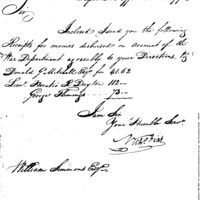 Sir
Inclosed I send you the following
Receipts for monies disbursed on account of the
War Department agreeably to your Directions, Viz
Donald G. Mitchell Esqr for 41.62
Lieut. Jonathan R. Dayton 112
George Flemming 73
I am Sir
Your Humble Servt
William Simmons Esqr